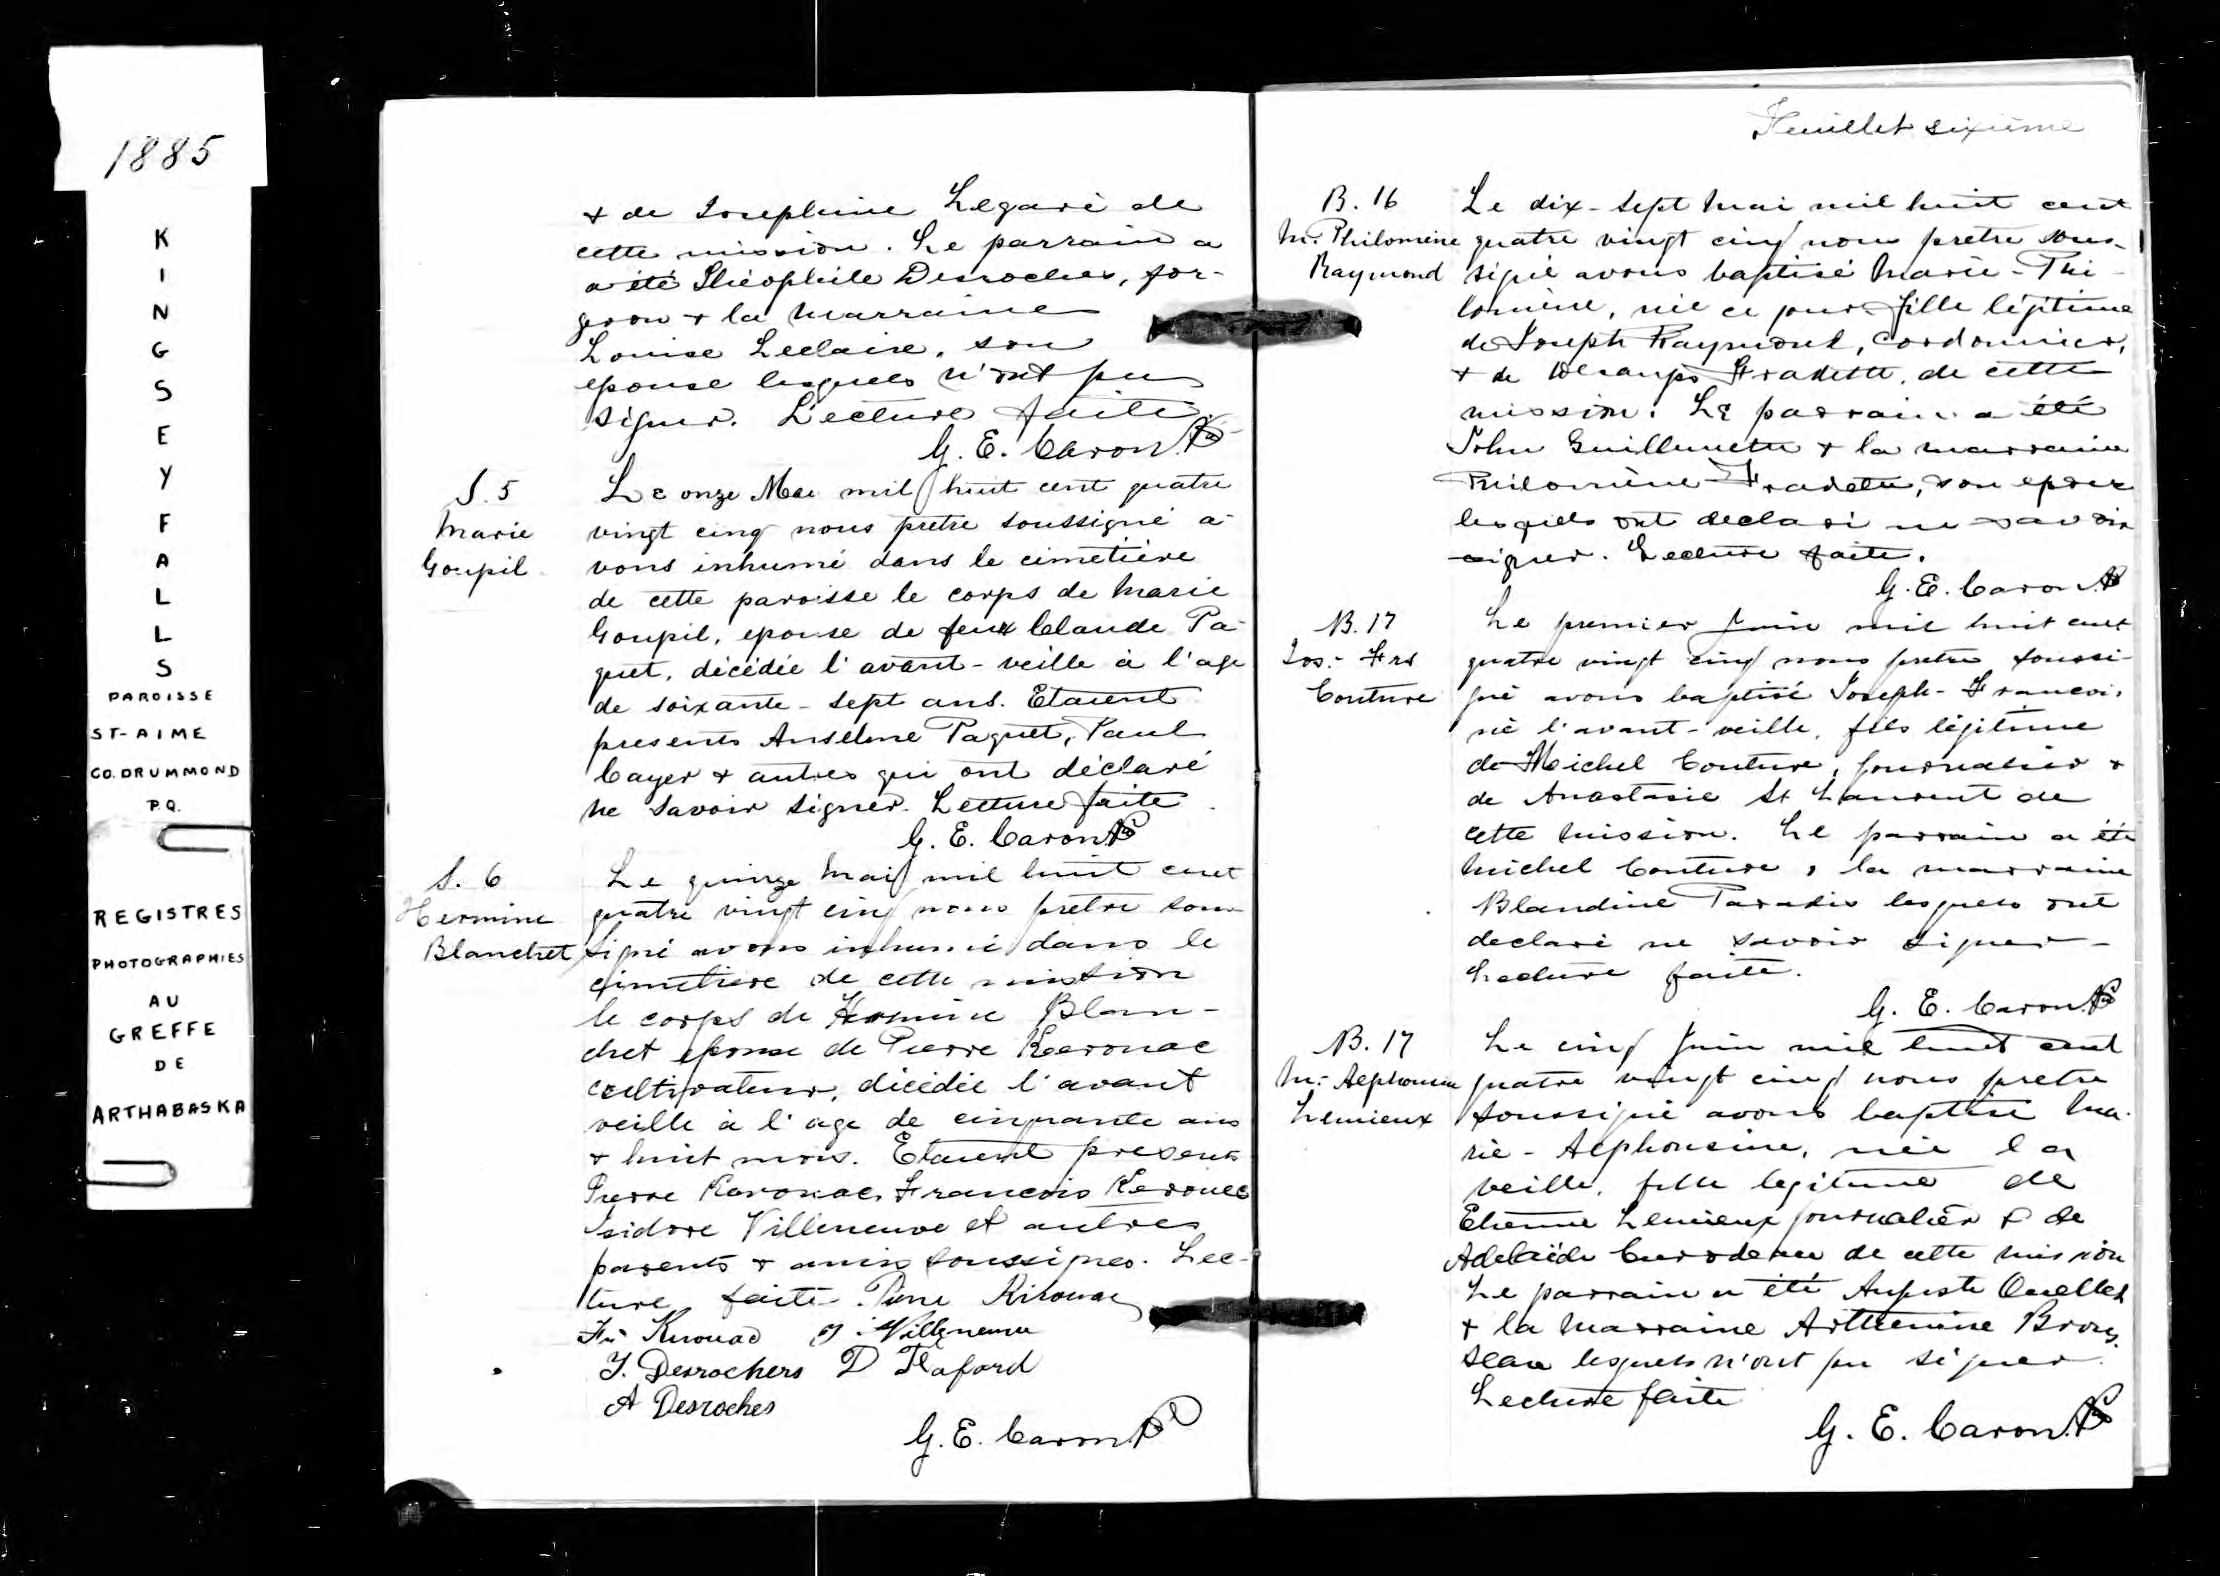 1885
KINGSEY FALLS
PAROISSE
ST-AIME
CO. DRUMMOND
P.Q.
REGISTRES
PHOTOGRAPHIES
AU
GREFFE
DE
ARTHABASKA
+ de Josephine Legaré de
cette mission. Le parrain a
a été Théophile Desroches, for-
geron + la marraine
Louise Leclaire, son
epouse lesquels n'ont pu
signer. Lecture faite.
G. E. Caron Ptr
S. 5
Marie
Goupil
Le onze Mai mil huit cent quatre
vingt cinq nous prêtre soussigné a-
vons inhumé dans le cimetière
de cette paroisse le corps de Marie
Goupil, epouse de feu Claude Pa-
quet, décédée l'avant-veille à l'age
de soixante-sept ans. Etaient
presents Anselme Paquet, Paul
Cayer + autres qui ont déclaré
ne savoir signer. Lecture faite.
G. E. Caron Ptr
S. 6
Hermine
Blanchet
Le quinze Mai mil huit cent
quatre vingt cinq nous prêtre sous-
signé avons inhumé dans le
cimetiere de cette mission
le corps de Hermine Blan-
chet epouse de Pierre Kerouac
cultivateur, décédée l'avant
veille à l'age de cinquante ans
+ huit mois. Etaient presents
Pierre Kerouac, Francois Kerouac
Isidore Villeneuve et autres
parents + amis soussignes. Lec-
ture faite. Pierre Kirouac
Frs Kirouac J. Villeneuve
J. Desrochers D Raford
A Desroches
G. E. Caron Ptr
Feuillet sixième
B. 16
M. Philomène
Raymond
Le dix-sept Mai mil huit cent
quatre vingt cinq nous prêtre sous-
signé avons baptisé Marie-Phi-
lomène, née ce jour fille légitime
de Joseph Raymond, cordonnier,
+ de Fradette, de cette
mission. Le parrain a été
John Guillemette + la marraine
Philomène Fradette, son epouse
lesquels ont declaré ne savoir
signer. Lecture faite.
G. E. Caron Ptr
B. 17
Jos.- Frs
Couture
Le premier Juin mil huit cent
quatre vingt cinq nous pretre soussi-
gné avons baptisé Joseph-Francois
né l'avant-veille, fils légitime
de Michel Couture, journalier +
de Anastasie St Laurent de
cette mission. Le parrain a été
Michel Couture, la marraine
Blandine Paradis lesquels ont
declaré ne savoir signer-
Lecture faite.
G. E. Caron Ptr
B. 17
M.- Alphonsine
Lemieux
Le cinq Juin mil huit cent
quatre vingt cinq nous pretre
soussigné avons baptisé Ma-
rie-Alphonsine, née la
veille, fille legitime de
Etienne Lemieux journalier & de
Adelaïde de cette mission
Le parrain a été Auguste Ouellet
+ la Marraine Arthemine Brous-
seau lesquels n'ont pu signer.
Lecture faite
G. E. Caron Ptr